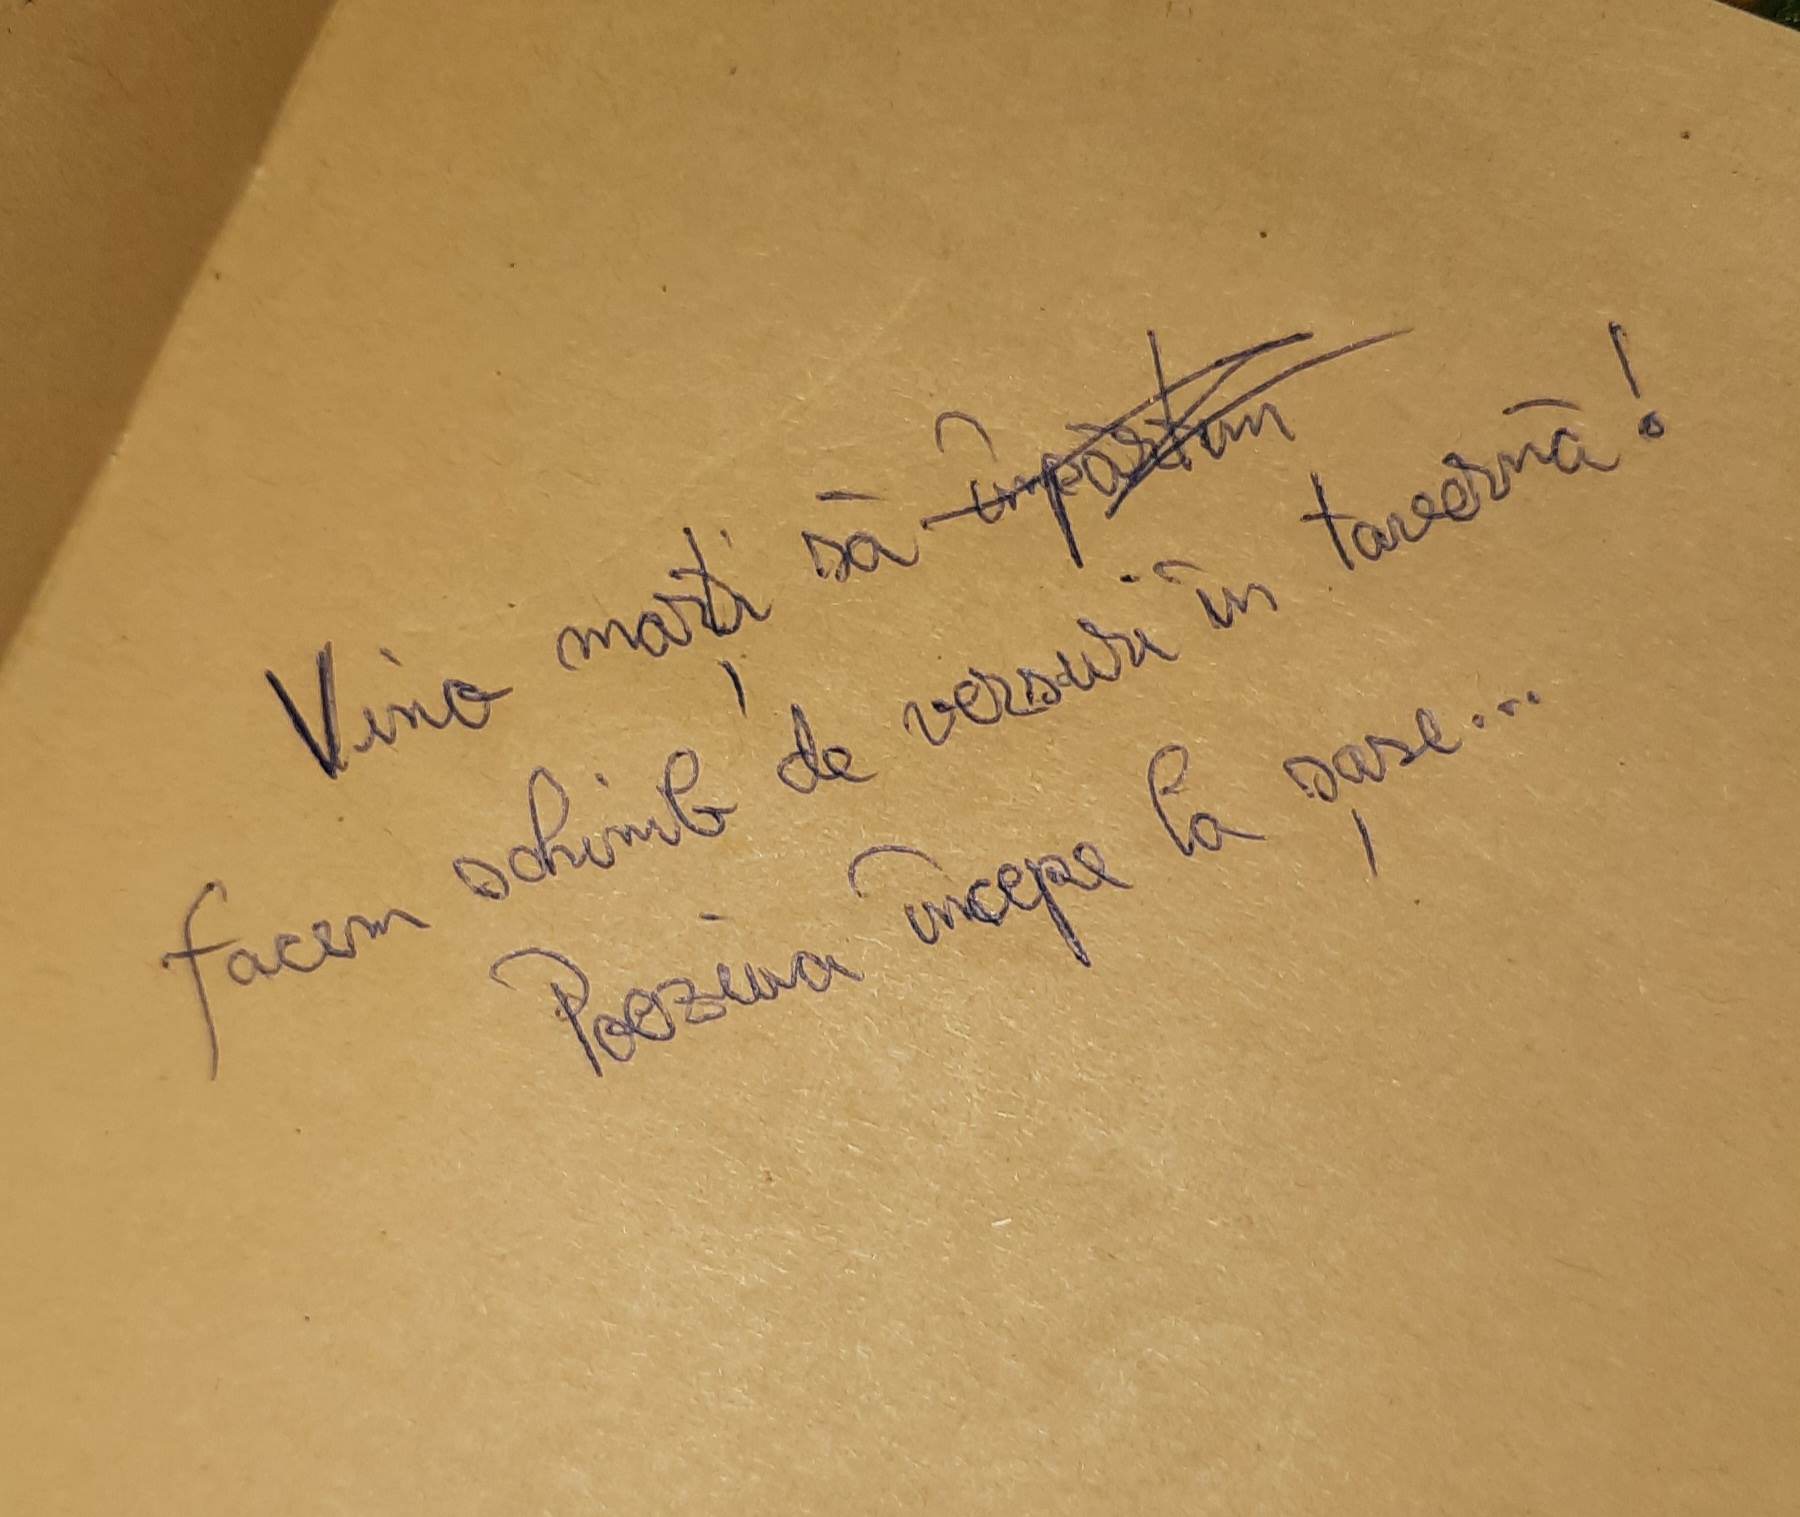 Vino marți să împărțim
facem schimb de versuri în tavernă!
Poezia începe la șase...